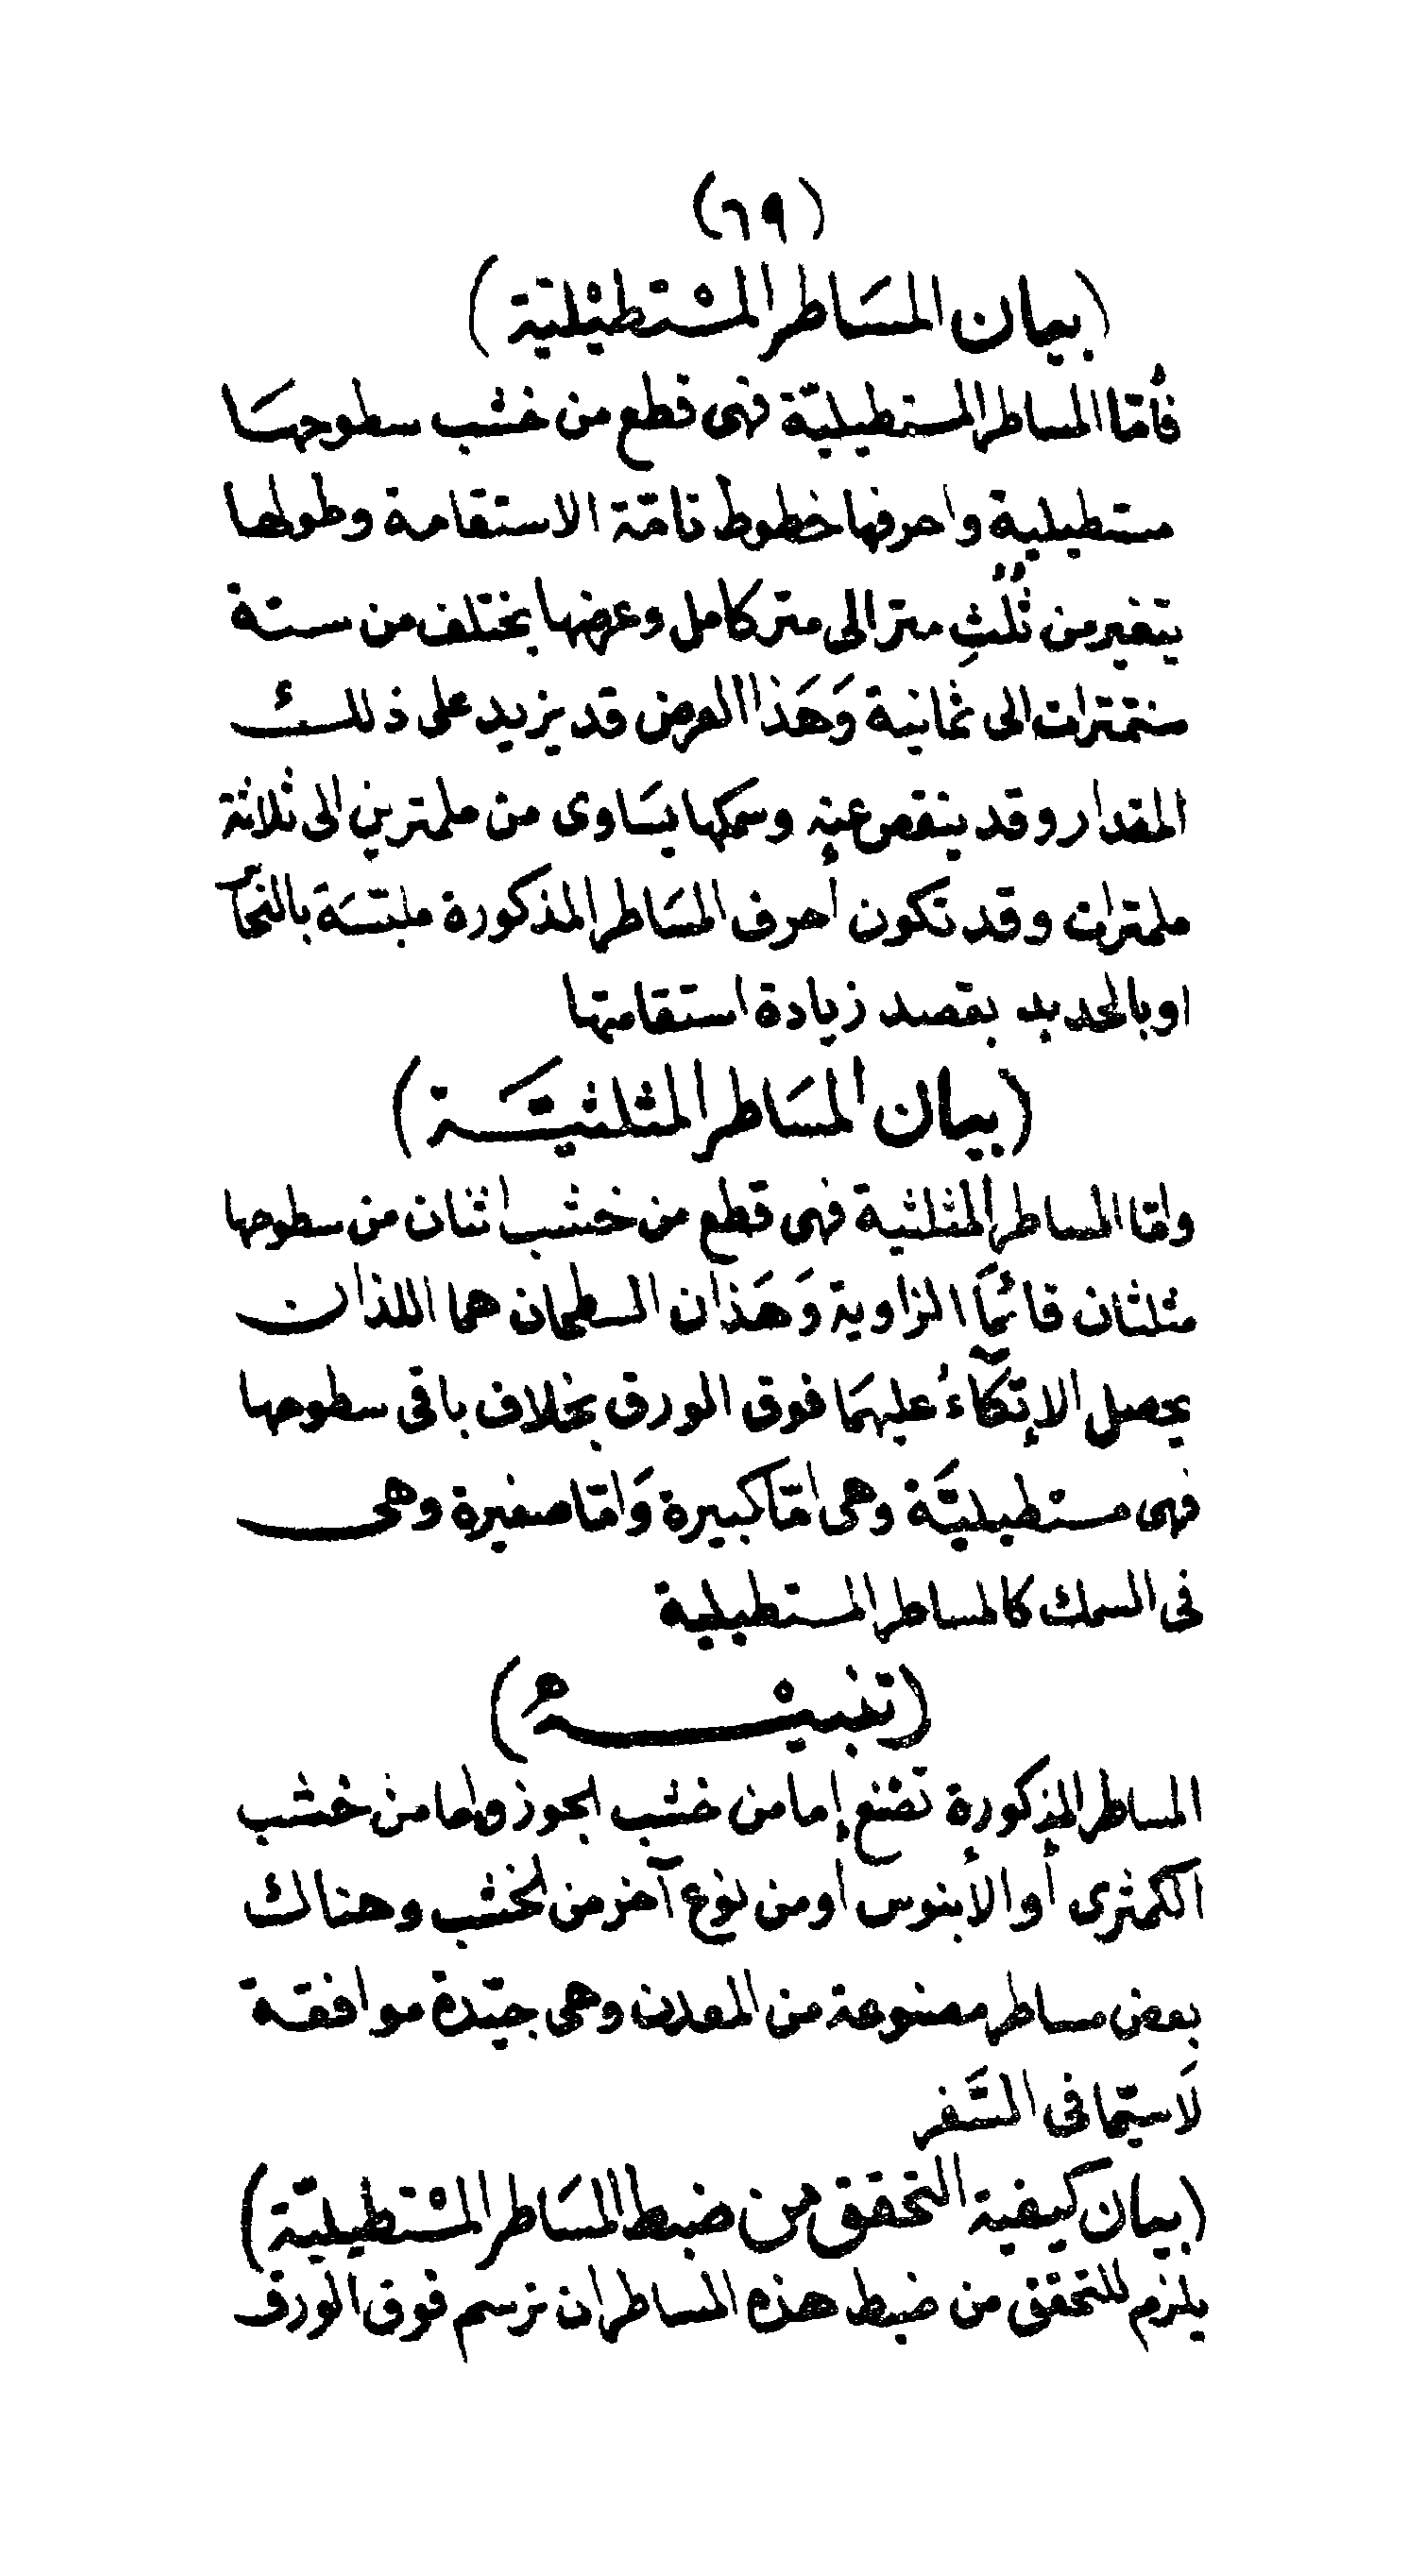 (٦٩)
(بيان المسَاطر المسْتطيْليّة)
فأمّا المساطر المستطيليّة فهى قطع من خشب سطوحهَا
مستطيلية واحرفها خطوط تامّة الاستقامة وطولها
يتغير من ثُلُثِ متر الى متر كامل وعرضها يختلف من ستة
سنتمترات الى ثمانية وَهَذا العرض قد يزيد على ذلك
المقدار وقد ينقص عنه وسمكها يسَاوى من ملمترين الى ثلاثة
ملمترات وقد تكون أحرف المسَاطر المذكورة ملبّسَة بالنحاس
او بالحديد بقصد زيادة استقامتها
(بيان المسَاطر المثلثيّة)
وامّا المساطر المثلثية فهى قطع من خشب اثنان من سطوحها
مثلثان قائمَا الزاوية وَهَذان السطحان هما اللذان
يحصل الإتّكآءُ عليهمَا فوق الورق بخلاف باقى سطوحها
فهى مستطيليَّة وهى امّا كبيرة وَامّا صغيرة وهى
فى السمك كالمساطر المستطيلية
(تنبيْهٌ)
المساطر المذكورة تصْنع إما من خشب الجوز وإما من خشب
الكمثرى أو الأبنوس أو من نوع آخر من الخشب وهناك
بعض مساطر مصنوعة من المعدن وهى جيّدة موافقة
لَا سيّما فى السَّفر
(بيان كيفية التحقق من ضبط المسَاطر المسْتطيليّة)
يلزم للتحقق من ضبط هذه المساطر ان ترسم فوق الورق